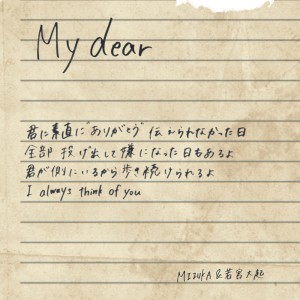 My dear
君に素直に"ありがとう"伝えられなかった日
全部投げ出して嫌になった日もあるよ
君が側にいるから歩き続けられるよ
I always think of you
MIZUKA &若岩大起